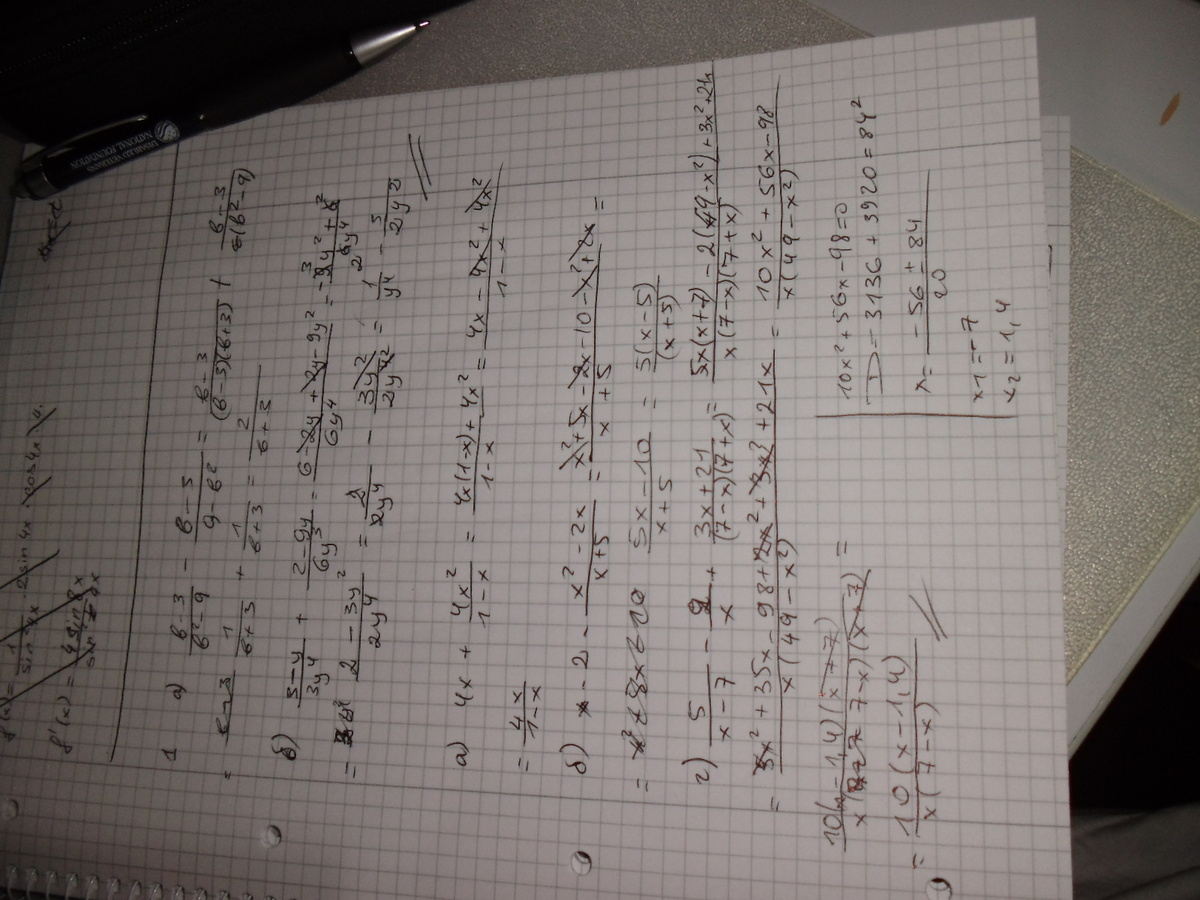 f'(x) = 1/sin²4x · 2sin 4x · cos4x · 4.
f'(x) = 4 sin 8x / sin² 4x
1 а) (в-3)/(в²-9) - (в-3)/(9-в²) = (в-3)/((в-3)(в+3)) + (в-3)/(в²-9)
= 1/(в+3) + 1/(в+3) = 2/(в+3)
б) (3-y)/3y⁴ + (2-9y)/6y³ = (6-2y+2y-9y²)/6y⁴
= (2-3y²)/2y⁴ = 2/2y⁴ - 3y²/2y⁴ = 1/y⁴ - 3/2y²
а) 4x + 4x²/(1-x) = (4x(1-x)+4x²)/(1-x) = (4x-4x²+4x²)/(1-x)
= 4x/(1-x)
б) x-2 - (x²-2x)/(x+5) = (x²+5x-2x-10-x²+2x)/(x+5) =
= (5x-10)/(x+5) = 5(x-5)/(x+5)
г) 5/(x-7) - 2/x + (3x+21)/((7-x)(7+x)) = (5x(x+7)-2(49-x²)+3x²+21x)/(x(7-x)(7+x))
= (5x²+35x-98+2x²+3x²+21x)/(x(49-x²)) = (10x²+56x-98)/(x(49-x²))
10(x-1,4)(x+7)/(x(7-x)(x+7)) =
= 10(x-1,4)/(x(7-x))
10x²+56x-98=0
D=3136+3920=84²
x = (-56±84)/20
x1=-7
x2=1,4
DISABLED VETERANS
NATIONAL FOUNDATION